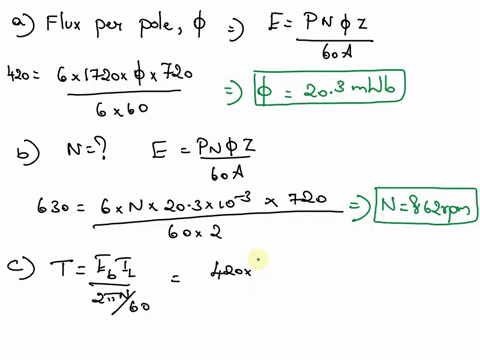 a) Flux per pole, ϕ ⇒ E = PNϕZ / 60A
420 = 6×1720×ϕ×720 / 6×60 ⇒ ϕ = 20.3 mWb
b) N = ? E = PNϕZ / 60A
630 = 6×N×20.3×10⁻³ × 720 / 60×2 ⇒ N = 862rpm
c) T = E_b I_L / 2πN/60 = 420×